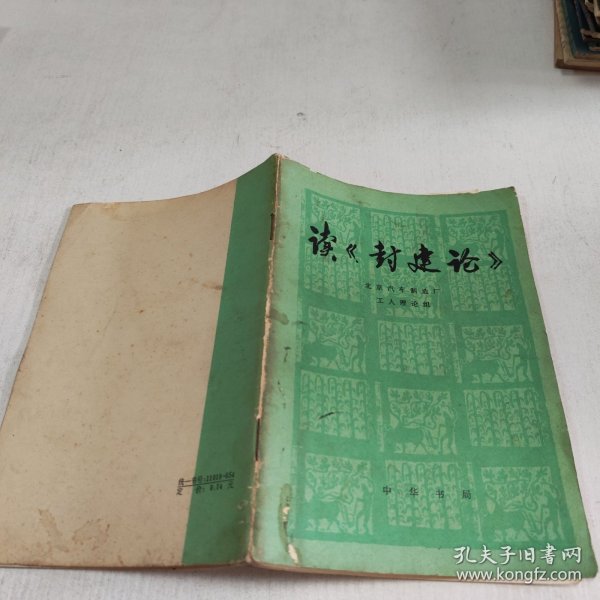 读《封建论》
北京汽车制造厂
工人理论组
中华书局
统一书号:11018·654
定价:0.14元
孔夫子旧书网
www.kongfz.com